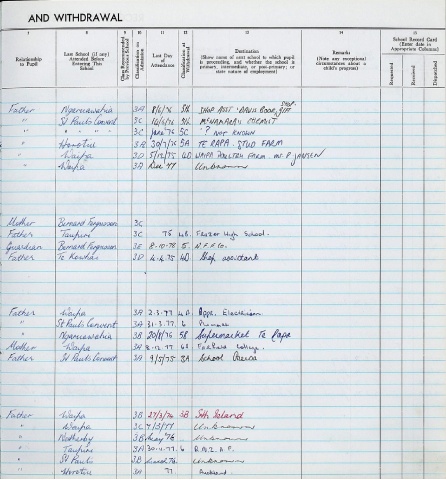 AND WITHDRAWAL
7 8 9 10 11 12 13 14 15
Relationship to Pupil
Last School (if any) Attended Before Entering This School
Classification on Admission
Last Day of Attendance
Classification at Withdrawal
Destination
(Show name of next school to which pupil is proceeding, and whether the school is primary, intermediate, or post-primary; or state nature of employment)
Remarks
(Note any exceptional circumstances about child's progress)
School Record Card
(Enter date in Appropriate Columns)
Requested
Received
Dispatched
Father Ngaruawahia 3A 8/6/76 5th SHOP ASST. BOOK SHOP
" St Pauls Convent 3C CHEMIST
" " " 3C June 76 5C ? NOT KNOWN
" Horotiu 3A 30/7/76 5A TE RAPA STUD FARM
" Waipa 3D 5/12/75 4D WAIPA POULTRY FARM. MR P JANSEN
" Waipa 3A Dec 77 Unknown
Mother Bernard Fergusson 3C
Father Taupiri 3C 75 4B. Fraser High School.
Guardian Bernard Fergusson 3E 8-10-76 5
Father Te Kowhai 3D 4-4-75 4D Shop assistant
Father Waipa 3A 2-3-77 Appr. Electrician
" St Pauls Convent 3A 31-3-77 6
" Ngaruawahia 3B 20/8/76 5B Supermarket Te Rapa
Mother Waipa 3A 8-12-77 College.
Father St Pauls Convent 3A 9/5/75 3A School
Father Waipa 3B 27/3/74 3B Sth Island
" Waipa 3C 4/3/77 Unknown
" Netherby 3B May 76 Unknown
" Taupiri 3A 30-4-77 6 R.N.Z.A.F.
" St Pauls 3B Unknown
" Horotiu 3A 77 Auckland